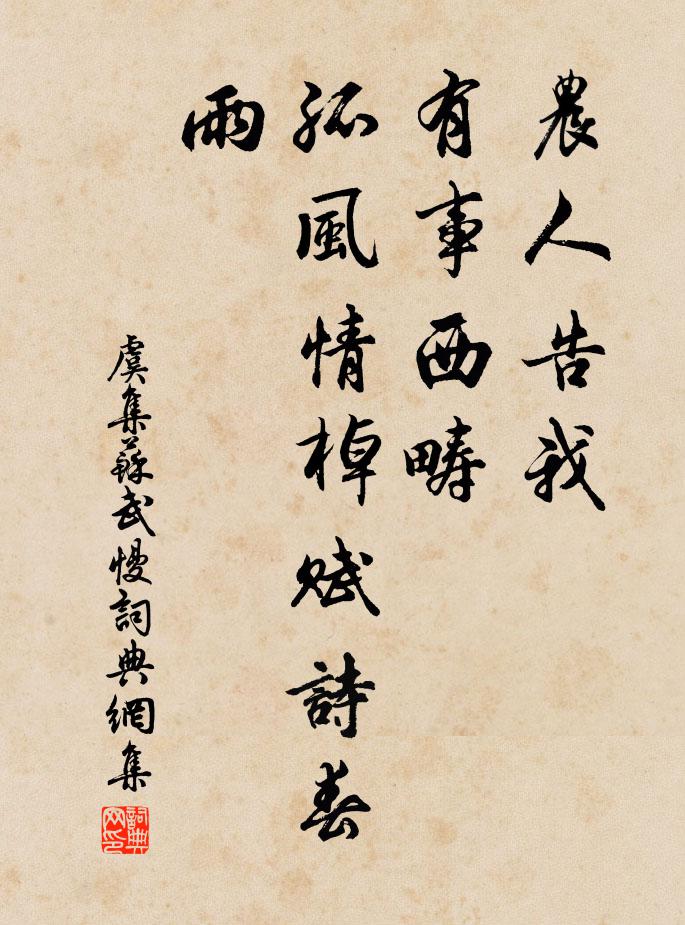 農人告我
有事西疇
孤風情棹賦詩春
雨
虞集蘇武慢詞典網集
詞典
网印